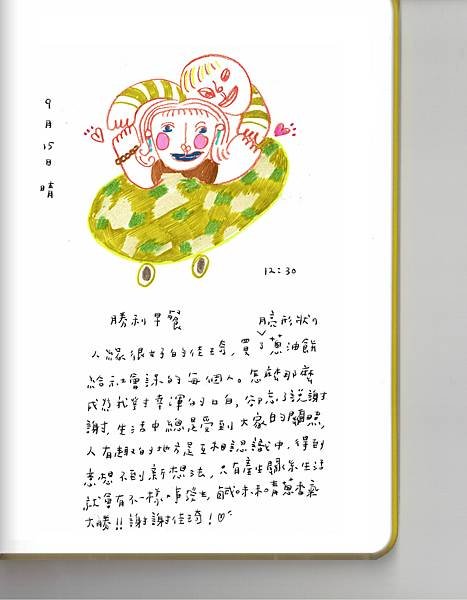 9月15日 晴
12:30
勝利早餐
亮形狀的
人緣很好的佳琦，買了蔥油餅
給社會課的每個人。怎麼那麼
成為我幸運的日，卻忘了說謝
謝，生活中總是受到大家的關照，
人有趣的地方是互相認識中，得到
意想不到新想法，只有產生關係生活
就會有不一樣的事發生，鹹味和青蔥香氣
大勝!!謝謝佳琦!♡